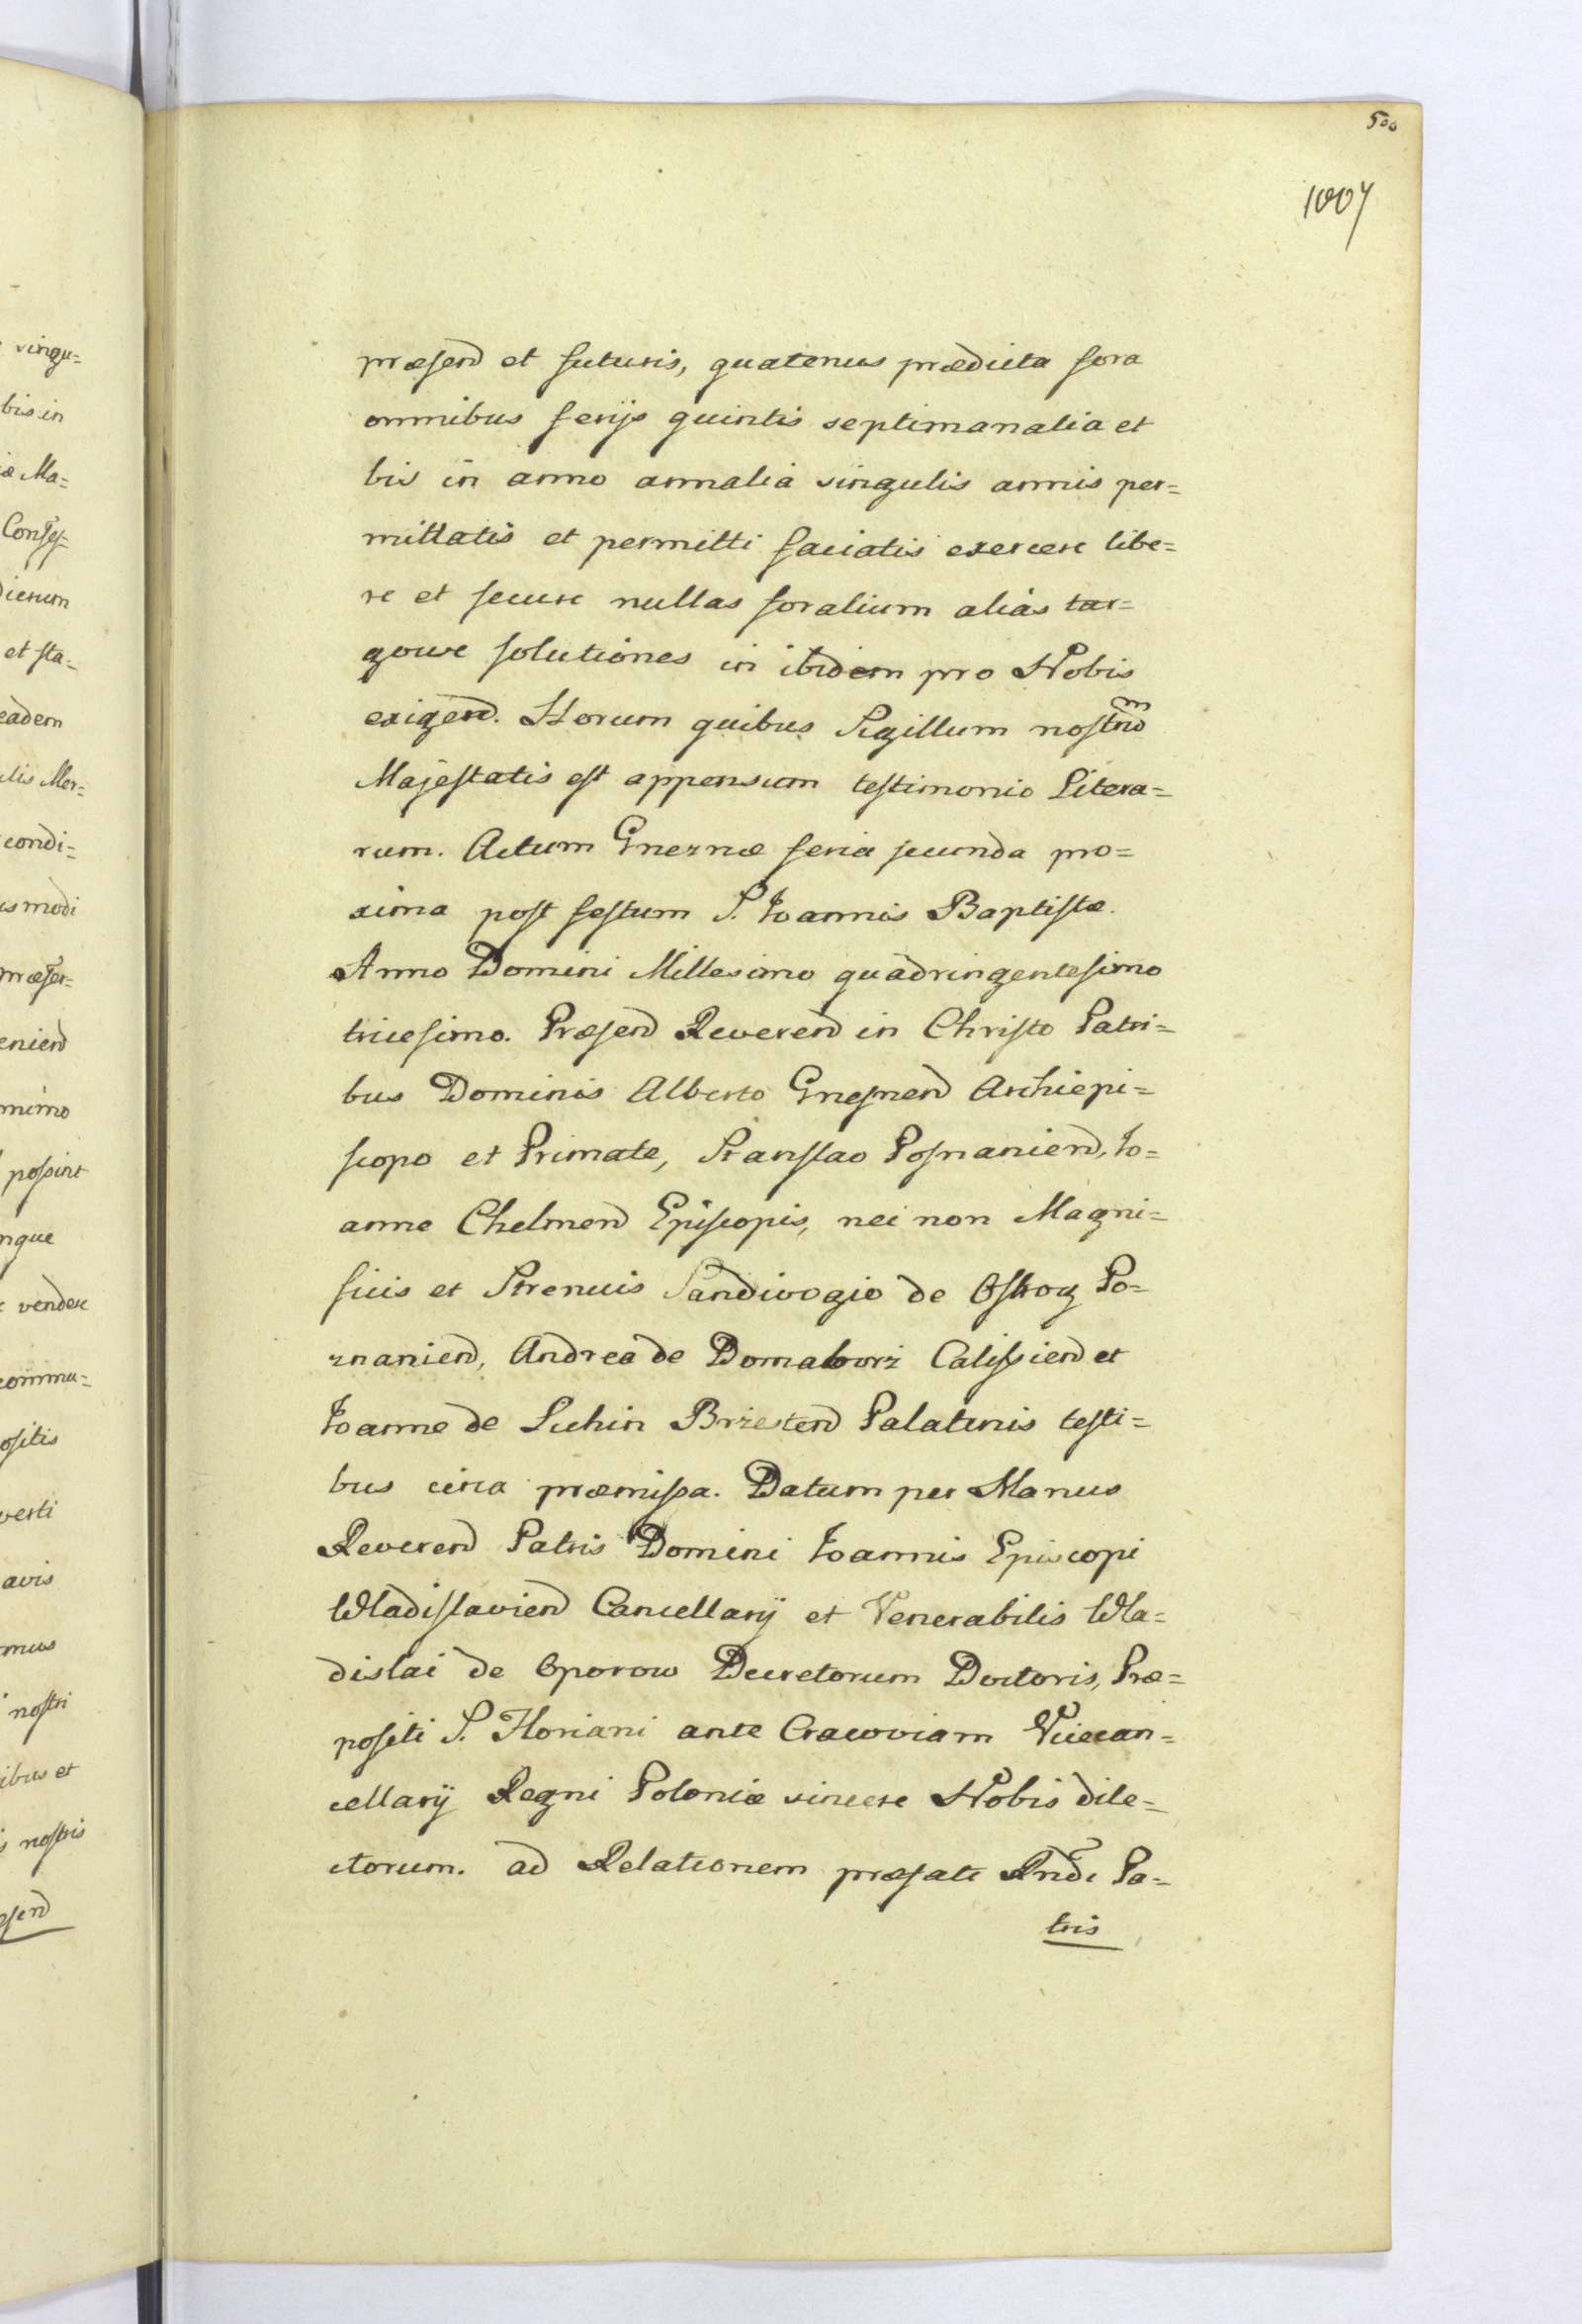 500
1007
præsend et futuris, quatenus prædicta fora
omnibus ferijs quintis septimanalia et
bis in anno annalia singulis annis per=
mittatis et permitti faciatis exercere libe=
re et secure nullas foralium alias tar=
gowe solutiones in ibidem pro Nobis
exigend. Horum quibus Sigillum nostrum
Majestatis est appensum testimonio Litera=
rum. Actum Gneznæ feria secunda pro=
xima post festum S. Joannis Baptistæ.
Anno Domini Millesimo quadringentesimo
tricesimo. Præsend Reverend in Christo Patri=
bus Dominis Alberto Gnesnend Archiepi=
scopo et Primate, Stanslao Posnaniend, Jo=
anne Chelmend Episcopis, nec non Magni=
ficis et Strenuis Sandivogio de Ostrog Po=
znaniend, Andrea de Domaborz Calissiend et
Joanne de Lichin Brzestend Palatinis testi=
bus circa præmissa. Datum per Manus
Reverend Patris Domini Joannis Episcopi
Wladislaviend Cancellarij et Venerabilis Wla=
dislai de Oporow Decretorum Doctoris, Præ=
positi S. Floriani ante Cracoviam Vicecan=
cellarij Regni Poloniæ sincere Nobis dile=
ctorum. ad Relationem præfati Rndi Pa=
tris
singu=
bis in
æ Ma=
dierum
et sta=
eadem
Mer=
condi=
modi
præser=
eniend
possint
vendere
commu=
ositis
verti
avis
mus
nostri
ibus et
nostris